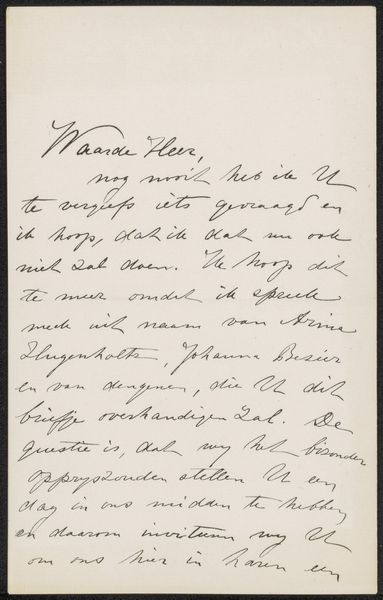 Waarde Heer,
nog nooit heb ik U
te vergeefs iets gevraagd en
ik hoop, dat ik dat nu ook
niet zal doen. Ik hoop dit
te meer omdat ik spreek
mede uit naam van Arina
Hugenholtz, Johanna Besier
en van dengenen, die U dit
briefje overhandigen zal. De
questie is, dat wy het bizonder
op prys zouden stellen U een
dag in ons midden te hebben
en daarom inviteeren wy U
om ons hier in Laren een